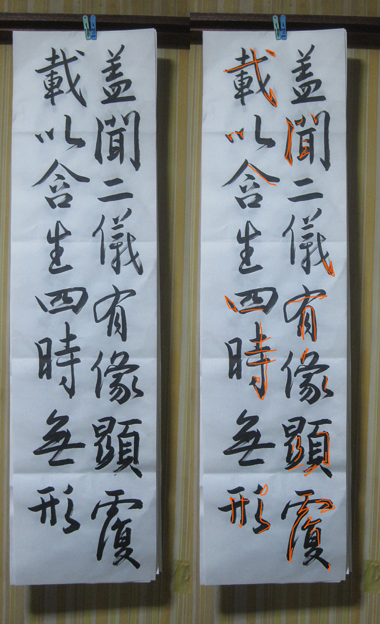 盖聞二儀有像顯覆
載以含生四時無形
盖聞二儀有像顯覆
載以含生四時無形